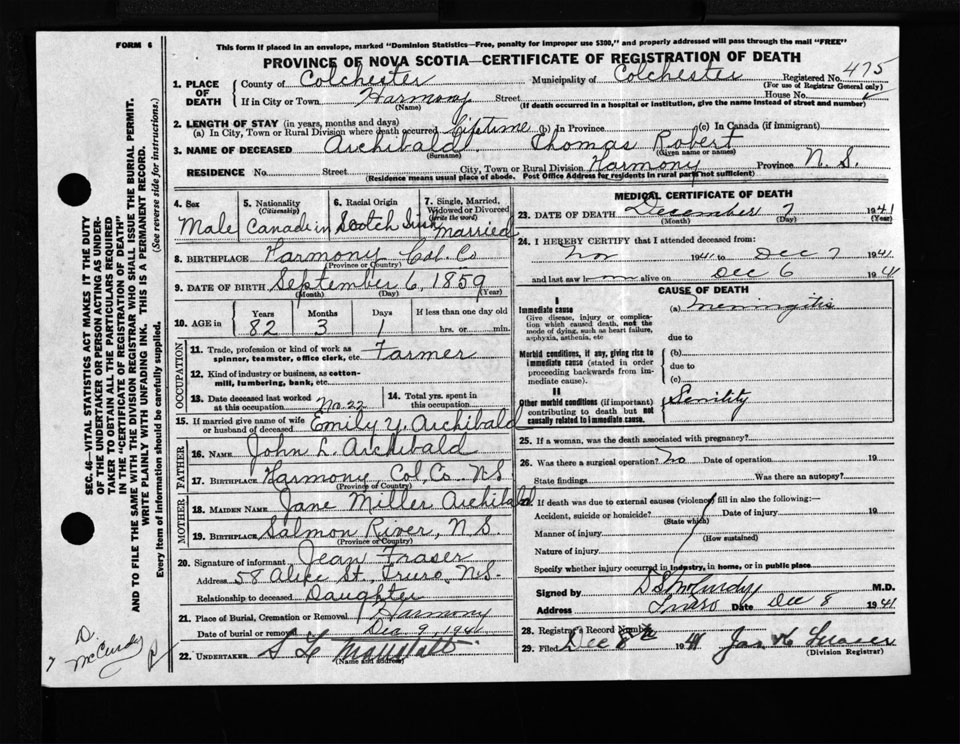 FORM 6
This form if placed in an envelope, marked "Dominion Statistics—Free, penalty for improper use $300," and properly addressed will pass through the mail "FREE"
PROVINCE OF NOVA SCOTIA—CERTIFICATE OF REGISTRATION OF DEATH
1. PLACE OF DEATH
County of Colchester Municipality of Colchester Registered No. 475
(For use of Registrar General only)
If in City or Town Harmony Street House No.
(Name) (If death occurred in a hospital or institution, give the name instead of street and number)
2. LENGTH OF STAY (in years, months and days)
(a) In City, Town or Rural Division where death occurred Lifetime (b) In Province (c) In Canada (if immigrant)
3. NAME OF DECEASED Archibald Thomas Robert
(Surname) (Given name or names)
RESIDENCE No. Street City, Town or Rural Division Harmony Province N.S.
(Residence means usual place of abode. Post Office Address for residents in rural parts not sufficient)
4. Sex Male
5. Nationality (Citizenship) Canadein
6. Racial Origin Scotch Irish
7. Single, Married, Widowed or Divorced (Write the word) Married
8. BIRTHPLACE Harmony Col. Co
(Province or Country)
9. DATE OF BIRTH September 6, 1859
(Month) (Day) (Year)
10. AGE in Years Months Days If less than one day old
82 3 1 hrs. or min.
OCCUPATION
11. Trade, profession or kind of work as spinner, teamster, office clerk, etc. Farmer
12. Kind of industry or business, as cotton-mill, lumbering, bank, etc.
13. Date deceased last worked at this occupation No. 22
14. Total yrs. spent in this occupation
15. If married give name of wife or husband of deceased Emily Y. Archibald
FATHER
16. NAME John L. Archibald
17. BIRTHPLACE Harmony Col, Co N.S
(Province or Country)
MOTHER
18. MAIDEN NAME Jane Miller Archibald
19. BIRTHPLACE Salmon River, N.S.
(Province or Country)
20. Signature of informant Jean Fraser
Address 58 St., Truro, N.S.
Relationship to deceased Daughter
21. Place of Burial, Cremation or Removal Harmony
Date of burial or removal Dec 9, 1941
22. UNDERTAKER
(Name and address)
MEDICAL CERTIFICATE OF DEATH
23. DATE OF DEATH December 7 1941
(Month) (Day) (Year)
24. I HEREBY CERTIFY that I attended deceased from:
Nov 1941 to Dec 7 1941
and last saw him alive on Dec 6 1941
CAUSE OF DEATH
I
Immediate cause
Give disease, injury or complication which caused death, not the mode of dying, such as heart failure, asphyxia, asthenia, etc
(a) Meningitis
due to
Morbid conditions, if any, giving rise to immediate cause (stated in order proceeding backwards from immediate cause).
(b)
due to
(c)
II
Other morbid conditions (if important) contributing to death but not causally related to immediate cause.
Senility
25. If a woman, was the death associated with pregnancy?
26. Was there a surgical operation? No Date of operation 19
State findings Was there an autopsy?
27. If death was due to external causes (violence) fill in also the following:—
Accident, suicide or homicide? Date of injury 19
(State which)
Manner of injury
(How sustained)
Nature of injury
Specify whether injury occurred in industry, in home, or in public place
Signed by D S McCurdy M.D.
Address Truro Date Dec 8 1941
28. Registrar's Record Number
29. Filed Dec 1941
(Division Registrar)
SEC. 46—VITAL STATISTICS ACT MAKES IT THE DUTY
OF THE UNDERTAKER OR PERSON ACTING AS UNDER-
TAKER TO OBTAIN ALL THE PARTICULARS REQUIRED
IN THE "CERTIFICATE OF REGISTRATION OF DEATH"
AND TO FILE THE SAME WITH THE DIVISION REGISTRAR WHO SHALL ISSUE THE BURIAL PERMIT.
WRITE PLAINLY WITH UNFADING INK. THIS IS A PERMANENT RECORD.
Every item of information should be carefully supplied. (See reverse side for instructions.)
D.
McCurdy